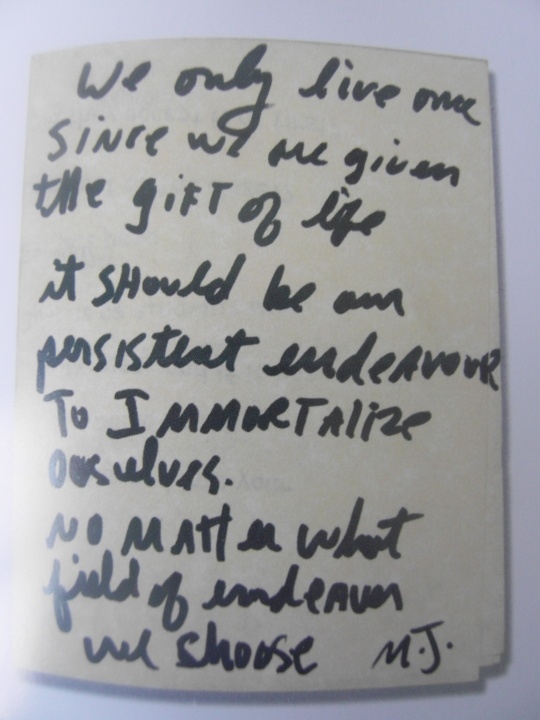 We only live once
since we are given
the gift of life
it should be our
persistent endeavour
To Immortalize
ourselves.
no matter what
field of endeaver
we shoose M.J.